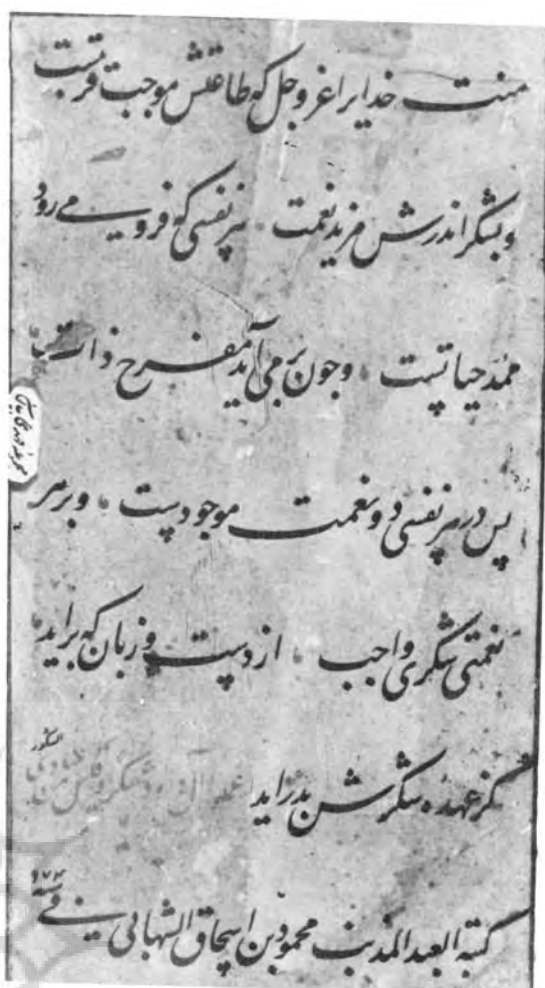 منت خدایرا عز و جل که طاعتش موجب قربتست
و بشکر اندرش مزید نعمت هر نفسی که فرو می رود
ممد حیاتست و چون بر می آید مفرح ذات
پس در هر نفسی دو نعمت موجودست و بر هر
نعمتی شکری واجب از دست و زبان که براید
کز عهده شکرش بدراید اعملوا آل داود شکرا و قلیل من عبادی الشکور
کتبه العبد المذنب محمود بن اسحاق الشهابی فی سنه ۹۷۳